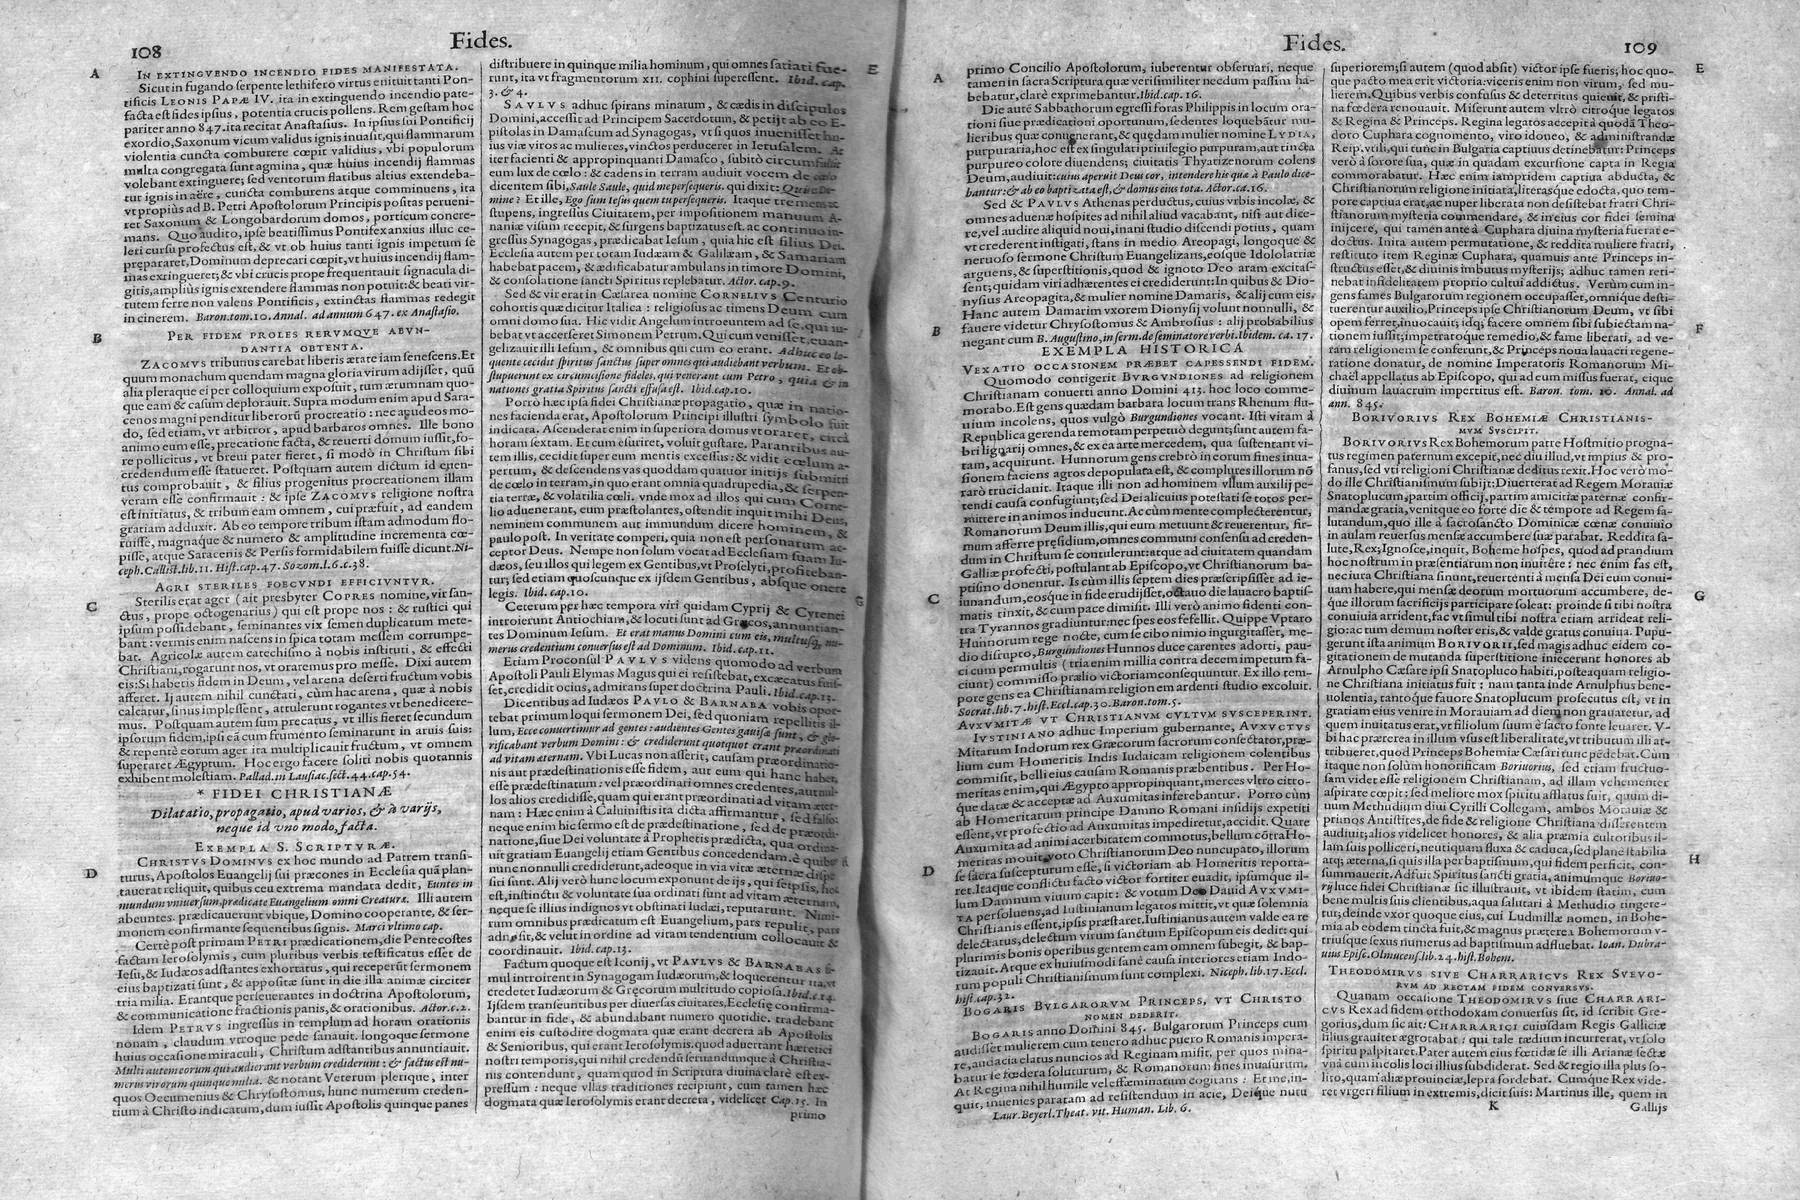 108
Fides.
A
IN EXTINGVENDO INCENDIO FIDES MANIFESTATA.
Sicut in fugando serpente lethifero virtus enituit tanti Pon-
tificis LEONIS PAPÆ IV. ita in extinguendo incendio pate-
facta est fides ipsius, potentia crucis pollens. Rem gestam hoc
pariter anno 847. ita recitat Anastasius. In ipsius sui Pontificij
exordio, Saxonum vicum validus ignis inuasit, qui flammarum
violentia cuncta comburere cœpit validius, vbi populorum
multa congregata sunt agmina, quæ huius incendij flammas
volebant extinguere; sed ventorum flatibus altius extendeba-
tur ignis in aëre, cuncta comburens atque comminuens, ita
vt propiùs ad B. Petri Apostolorum Principis positas perueni-
ret Saxonum & Longobardorum domos, porticum concre-
mans. Quo audito, ipse beatissimus Pontifex anxius illuc ce-
leri cursu profectus est, & vt ob huius tanti ignis impetum se
præpararet, Dominum deprecari cœpit, vt huius incendij flam-
mas extingueret; & vbi crucis prope frequentauit signacula di-
gitis, ampliùs ignis extendere flammas non potuit: & beati vir-
tutem ferre non valens Pontificis, extinctas flammas redegit
in cinerem. Baron. tom. 10. Annal. ad annum 647. ex Anastasio.
B
PER FIDEM PROLES RERVMQVE ABVN-
DANTIA OBTENTA.
ZACOMVS tribunus carebat liberis ætate iam senescens. Et
quum monachum quendam magna gloria virum adijsset, quū
alia pleraque ei per colloquium exposuit, tum ærumnam quo-
que eam & casum deplorauit. Supra modum enim apud Sara-
cenos magni penditur liberorū procreatio: nec apud eos mo-
do, sed etiam, vt arbitror, apud barbaros omnes. Ille bono
animo eum esse, precatione facta, & reuerti domum iussit, fo-
re pollicitus, vt breui pater fieret, si modò in Christum sibi
credendum esse statueret. Postquam autem dictum id euen-
tus comprobauit, & filius progenitus procreationem illam
veram esse confirmauit: & ipse ZACOMVS religione nostra
est initiatus, & tribum eam omnem, cui præfuit, ad eandem
gratiam adduxit. Ab eo tempore tribum istam admodum flo-
ruisse, magnaque & numero & amplitudine incrementa cœ-
pisse, atque Saracenis & Persis formidabilem fuisse dicunt. Ni-
ceph. Callist. lib. 11. Hist. cap. 47. Sozom. l. 6. c. 38.
AGRI STERILES FOECVNDI EFFICIVNTVR.
C
Sterilis erat ager (ait presbyter COPRES nomine, vir san-
ctus, prope octogenarius) qui est prope nos: & rustici qui
ipsum possidebant, seminantes vix semen duplicatum mete-
bant: vermis enim nascens in spica totam messem corrumpe-
bat. Agricolæ autem catechismo à nobis instituti, & effecti
Christiani, rogarunt nos, vt oraremus pro messe. Dixi autem
eis: Si habetis fidem in Deum, vel arena deserti fructum vobis
afferet. Ij autem nihil cunctati, cùm hac arena, quæ à nobis
calcatur, sinus implessent, attulerunt rogantes vt benedicere-
mus. Postquam autem sum precatus, vt illis fieret secundum
ipsorum fidem, ipsi eā cum frumento seminarunt in aruis suis:
& repentè eorum ager ita multiplicauit fructum, vt omnem
superaret Ægyptum. Hoc ergo facere soliti nobis quotannis
exhibent molestiam. Pallad. in Lausiac. sect. 44. cap. 54.
* FIDEI CHRISTIANÆ
Dilatatio, propagatio, apud varios, & à varijs,
neque id vno modo, facta.
EXEMPLA S. SCRIPTVRÆ.
D
CHRISTVS DOMINVS ex hoc mundo ad Patrem transi-
turus, Apostolos Euangelij sui præcones in Ecclesia quā plan-
tauerat reliquit, quibus ceu extrema mandata dedit, Euntes in
mundum vniuersum, prædicate Euangelium omni Creaturæ. Illi autem
abeuntes. prædicauerunt vbique, Domino cooperante, & ser-
monem confirmante sequentibus signis. Marci vltimo cap.
Certè post primam PETRI prædicationem, die Pentecostes
factam Ierosolymis, cum pluribus verbis testificatus esset de
Iesu, & Iudæos adstantes exhortatus, qui receperūt sermonem
eius baptizati sunt, & appositæ sunt in die illa animæ circiter
tria milia. Erantque perseuerantes in doctrina Apostolorum,
& communicatione fractionis panis, & orationibus. Actor. c. 2.
Idem PETRVS ingressus in templum ad horam orationis
nonam, claudum vtroque pede sanauit. longoque sermone
huius occasione miraculi, Christum adstantibus annuntiauit.
Multi autem eorum qui audierant verbum crediderunt: & factus est nu-
merus virorum quinque milia. & notant Veterum plerique, inter
quos Oecumenius & Chrysostomus, hunc numerum creden-
tium à Christo indicatum, dum iussit Apostolis quinque panes
distribuere in quinque milia hominum, qui omnes satiati fue-
E
runt, ita vt fragmentorum XII. cophini superessent. Ibid. cap.
3. & 4.
SAVLVS adhuc spirans minarum, & cædis in discipulos
Domini, accessit ad Principem Sacerdotum, & petijt ab eo E-
pistolas in Damascum ad Synagogas, vt si quos inuenisset hu-
ius viæ viros ac mulieres, vinctos perduceret in Ierusalem. Ac
iter facienti & appropinquanti Damasco, subitò circumfulsit
eum lux de cœlo: & cadens in terram audiuit vocem de cœlo
dicentem sibi, Saule Saule, quid me persequeris. qui dixit: Quis es Do-
mine? Et ille, Ego sum Iesus quem tu persequeris. Itaque tremens ac
stupens, ingressus Ciuitatem, per impositionem manuum A-
naniæ visum recepit, & surgens baptizatus est. ac continuo in-
gressus Synagogas, prædicabat Iesum, quia hic est filius Dei.
Ecclesia autem per totam Iudæam & Galilæam, & Samariam
habebat pacem, & ædificabatur ambulans in timore Domini,
& consolatione sancti Spiritus replebatur. Actor. cap. 9.
Sed & vir erat in Cæsarea nomine CORNELIVS Centurio
cohortis quæ dicitur Italica: religiosus ac timens Deum cum
omni domo sua. Hic vidit Angelum introeuntem ad se, qui iu-
bebat vt accerseret Simonem Petrum. Qui cum venisset, euan-
gelizauit illi Iesum, & omnibus qui cum eo erant. Adhuc eo lo-
quente cecidit spiritus sanctus super omnes qui audiebant verbum. Et ob-
stupuerunt ex circumcisione fideles, qui venerant cum Petro, quia & in
nationes gratia Spiritus sancti effusa est. Ibid. cap. 10.
Porrò hæc ipsa fidei Christianæ propagatio, quæ in natio-
nes facienda erat, Apostolorum Principi illustri symbolo fuit
indicata. Ascenderat enim in superiora domus vt oraret, circa
horam sextam. Et cum esuriret, voluit gustare. Parantibus au-
tem illis, cecidit super eum mentis excessus: & vidit cœlum a-
pertum, & descendens vas quoddam quatuor initijs submitti
de cœlo in terram, in quo erant omnia quadrupedia, & serpen-
tia terræ, & volatilia cœli. vnde mox ad illos qui cum Corne-
lio aduenerant, eum præstolantes, ostendit inquit mihi Deus,
neminem communem aut immundum dicere hominem, &
paulo post. In veritate comperi, quia non est personarum ac-
ceptor Deus. Nempe non solum vocat ad Ecclesiam suam Iu-
dæos, seu illos qui legem ex Gentibus, vt Proselyti, profiteban-
tur; sed etiam quoscunque ex ijsdem Gentibus, absque onere
legis. Ibid. cap. 10.
G
Ceterum per hæc tempora viri quidam Cyprij & Cyrenei
introierunt Antiochiam, & locuti sunt ad Græcos, annuntian-
tes Dominum Iesum. Et erat manus Domini cum eis, multusq; nu-
merus credentium conuersus est ad Dominum. Ibid. cap. 11.
Etiam Proconsul PAVLVS videns quomodo ad verbum
Apostoli Pauli Elymas Magus qui ei resistebat, excæcatus fuis-
set, credidit ocius, admirans super doctrina Pauli. Ibid. cap. 13.
Dicentibus ad Iudæos PAVLO & BARNABA vobis opor-
tebat primum loqui sermonem Dei, sed quoniam repellitis il-
lum, Ecce conuertimur ad gentes: audientes Gentes gauisæ sunt, & glo-
rificabant verbum Domini: & crediderunt quotquot erant præordinati
ad vitam æternam. Vbi Lucas non asserit, causam præordinatio-
nis aut prædestinationis esse fidem, aut eum qui hanc habet,
esse prædestinatum: vel præordinati omnes credentes, aut nul-
los alios credidisse, quam qui erant præordinati ad vitam æter-
nam: Hæc enim à Caluinistis ita dicta affirmantur, sed falso:
neque enim hic sermo est de prædestinatione, sed de præordi-
natione, siue Dei voluntate à Prophetis prædicta, qua ordina-
uit gratiam Euangelij etiam Gentibus concedendam. è quibus
nunc nonnulli crediderunt, adeoque in via vitæ æternæ dispo-
siti sunt. Alij verò hunc locum exponunt de ijs, qui seipsis, hoc
est, instinctu & voluntate sua ordinati sunt ad vitam æternam,
neque se illius indignos vt obstinati Iudæi, reputarunt. Nimi-
rum omnibus prædicatum est Euangelium, pars repulit, pars
admisit, & velut in ordine ad vitam tendentium collocauit &
coordinauit. Ibid. cap. 13.
Factum quoque est Iconij, vt PAVLVS & BARNABAS si-
mul introirent in Synagogam Iudæorum, & loquerentur ita, vt
credetet Iudæorum & Gręcorum multitudo copiosa. Ibid. c. 14.
Ijsdem transeuntibus per diuersas ciuitates, Ecclesię confirma-
bantur in fide, & abundabant numero quotidie. tradebant
enim eis custodire dogmata quæ erant decreta ab Apostolis
& Senioribus, qui erant Ierosolymis. quod aduertant hæretici
nostri temporis, qui nihil credendū seruandumque à Christia-
nis contendunt, quam quod in Scriptura diuina clarè est ex-
pressum: neque vllas traditiones recipiunt, cum tamen hæc
dogmata quæ Ierosolymis erant decreta, videlicet Cap. 15. In
primo
Fides.
109
A
primo Concilio Apostolorum, iuberentur obseruari, neque
tamen in sacra Scriptura quæ verisimiliter necdum passim ha-
bebatur, clarè exprimebantur. Ibid. cap. 16.
Die autē Sabbathorum egressi foras Philippis in locum ora-
tioni siue prædicationi oportunum, sedentes loquebātur mu-
lieribus quæ conuenerant, & quędam mulier nomine LYDIA,
purpuraria, hoc est ex singulari priuilegio purpuram, aut tincta
purpureo colore diuendens; ciuitatis Thyatizenorum colens
Deum, audiuit: cuius aperuit Deus cor, intendere his quæ à Paulo dice-
bantur: & ab eo baptizata est, & domus eius tota. Actor. ca. 16.
Sed & PAVLVS Athenas perductus, cuius vrbis incolæ, &
omnes aduenæ hospites ad nihil aliud vacabant, nisi aut dice-
re, vel audire aliquid noui, inani studio discendi potius, quam
vt crederent instigati, stans in medio Areopagi, longoque &
neruoso sermone Christum Euangelizans, eosque Idololatriæ
arguens, & superstitionis, quod & ignoto Deo aram excitas-
sent; quidam viri adhærentes ei crediderunt: In quibus & Dio-
nysius Areopagita, & mulier nomine Damaris, & alij cum eis.
Hanc autem Damarim vxorem Dionysij volunt nonnulli, &
B
fauere videtur Chrysostomus & Ambrosius: alij probabilius
negant cum B. Augustino, in serm. de seminatore verbi. Ibidem. ca. 17.
EXEMPLA HISTORICA
VEXATIO OCCASIONEM PRÆBET CAPESSENDI FIDEM.
Quomodo contigerit BVRGVNDIONES ad religionem
Christianam conuerti anno Domini 413. hoc loco comme-
morabo. Est gens quædam barbara locum trans Rhenum flu-
uium incolens, quos vulgò Burgundiones vocant. Isti vitam à
Republica gerenda remotam perpetuò degunt; sunt autem fa-
bri lignarij omnes, & ex ea arte mercedem, qua sustentant vi-
tam, acquirunt. Hunnorum gens crebrò in eorum fines inua-
sionem faciens agros depopulata est, & complures illorum nō
rarò trucidauit. Itaque illi non ad hominem vllum auxilij pe-
tendi causa confugiunt; sed Dei alicuius potestati se totos per-
mittere in animos inducunt. Ac cùm mente complecterentur,
Romanorum Deum illis, qui eum metuunt & reuerentur, fir-
mum afferre pręsidium, omnes communi consensu ad creden-
dum in Christum se contulerunt: atque ad ciuitatem quandam
Galliæ profecti, postulant ab Episcopo, vt Christianorum ba-
ptismo donentur. Is cùm illis septem dies præscripsisset ad ie-
C
iunandum, eosque in fide erudijsset, octauo die lauacro baptis-
matis tinxit, & cum pace dimisit. Illi verò animo fidenti con-
tra Tyrannos gradiuntur: nec spes eos fefellit. Quippe Vptaro
Hunnorum rege nocte, cum se cibo nimio ingurgitasset, me-
dio disrupto, Burgundiones Hunnos duce carentes adorti, pau-
ci cum permultis (tria enim millia contra decem impetum fa-
ciunt) commisso prælio victoriam consequuntur. Ex illo tem-
pore gens ea Christianam religionem ardenti studio excoluit.
Socrat. lib. 7. hist. Eccl. cap. 30. Baron. tom. 5.
AVXVMITÆ VT CHRISTIANVM CVLTVM SVSCEPERINT.
IVSTINIANO adhuc Imperium gubernante, AVXVCTVS
Mitarum Indorum rex Græcorum sacrorum consectator, præ-
lium cum Homeritis Indis Iudaicam religionem colentibus
commisit, belli eius causam Romanis præbentibus. Per Ho-
meritas enim, qui Ægypto appropinquant, merces vltro citro-
que datæ & acceptæ ad Auxumitas inferebantur. Porro cùm
ab Homeritarum principe Damno Romani insidijs expetiti
essent, vt profectio ad Auxumitas impediretur, accidit. Quare
Auxumita ad animi acerbitatem commotus, bellum cōtra Ho-
meritas mouit, voto Christianorum Deo nuncupato, illorum
se sacra suscepturum esse, si victoriam ab Homeritis reporta-
D
ret. Itaque conflictu facto victor fortiter euadit, ipsumque il-
lum Damnum viuum capit: & votum Deo Dauid AVXVMI-
TA persoluens, ad Iustinianum legatos mittit, vt quæ solemnia
Christianis essent, ipsis præstaret. Iustinianus autem valde ea re
delectatus, delectum virum sanctum Episcopum eis dedit: qui
plurimis bonis operibus gentem eam omnem subegit, & bap-
tizauit. Atque ex huiusmodi sanè causa interiores etiam Indo-
rum populi Christianismum sunt complexi. Niceph. lib. 17. Eccl.
hist. cap. 32.
BOGARIS BVLGARORVM PRINCEPS, VT CHRISTO
NOMEN DEDERIT.
BOGARIS anno Domini 845. Bulgarorum Princeps cum
audisset mulierem cum tenero adhuc puero Romanis impera-
re, audacia elatus nuncios ad Reginam misit, per quos mina-
batur se fœdera soluturum, & Romanorum fines inuasurum.
At Regina nihil humile vel effœminatum cogitans: Et me, in-
quit, inuenies paratam ad resistendum in acie, Deique nutu
Laur. Beyerl. Theat. vit. Human. Lib. 6.
superiorem; si autem (quod absit) victor ipse fueris; hoc quo-
E
que pacto mea erit victoria: viceris enim non virum, sed mu-
lierem. Quibus verbis confusus & deterritus quieuit, & pristi-
na fœdera renouauit. Miserunt autem vltrò citroque legatos
& Regina & Princeps. Regina legatos accepit à quodā Theo-
doro Cuphara cognomento, viro idoneo, & administrandæ
Reip. vtili, qui tunc in Bulgaria captiuus detinebatur: Princeps
verò à sorore sua, quæ in quadam excursione capta in Regia
commorabatur. Hæc enim iampridem captiua abducta, &
Christianorum religione initiata, literasque edocta, quo tem-
pore captiua erat, ac nuper liberata non desistebat fratri Chri-
stianorum mysteria commendare, & in eius cor fidei semina
inijcere, qui tamen ante à Cuphara diuina mysteria fuerat e-
doctus. Inita autem permutatione, & reddita muliere fratri,
restituto item Reginæ Cuphara, quamuis ante Princeps in-
structus esset, & diuinis imbutus mysterijs; adhuc tamen reti-
nebat infidelitatem proprio cultui addictus. Verùm cum in-
gens fames Bulgarorum regionem occupasset, omnique desti-
tuerentur auxilio, Princeps ipse Christianorum Deum, vt sibi
opem ferret, inuocauit; idq; facere omnem sibi subiectam na-
F
tionem iussit; impetratoque remedio, & fame liberati, ad ve-
ram religionem se conferunt, & Princeps noua lauacri regene-
ratione donatur, de nomine Imperatoris Romanorum Mi-
chaël appellatus ab Episcopo, qui ad eum missus fuerat, eique
diuinum lauacrum impertitus est. Baron. tom. 10. Annal. ad
ann. 845.
BORIVORIVS REX BOHEMIÆ CHRISTIANIS-
MVM SVSCIPIT.
BORIVORIVS Rex Bohemorum patre Hostmitio progna-
tus regimen paternum excepit, nec diu illud, vt impius & pro-
fanus, sed vti religioni Christianæ deditus rexit. Hoc verò mo-
do ille Christianismum subijt: Diuerterat ad Regem Morauiæ
Snatoplucum, partim officij, partim amicitiæ paternæ confir-
mandæ gratia, venitque eo forte die & tempore ad Regem sa-
lutandum, quo ille à sacrosancto Dominicæ cœnæ conuiuio
in aulam reuersus mensæ accumbere suæ parabat. Reddita sa-
lute, Rex; Ignosce, inquit, Boheme hospes, quod ad prandium
hoc nostrum in præsentiarum non inuitere: nec enim fas est,
nec iura Christiana sinunt, reuerenti à mensa Dei eum conui-
G
uam habere, qui mensæ deorum mortuorum accumbere, de-
que illorum sacrificijs participare soleat: proinde si tibi nostra
conuiuia arrident, fac vt simul tibi nostra etiam arrideat reli-
gio: ac tum demum noster eris, & valde gratus conuiua. Pupu-
gerunt ista animum BORIVORII, sed magis adhuc eidem co-
gitationem de mutanda superstitione iniecerunt honores ab
Arnulpho Cæsare ipsi Snatopluco habiti, posteaquam religio-
ne Christiana initiatus fuit: nam tanta inde Arnulphus bene-
uolentia, tantoque fauore Snatoplucum prosecutus est, vt in
gratiam eius venire in Morauiam ad diem non grauatetur, ad
quem inuitatus erat, vt filiolum suum è sacro fonte leuaret. V-
bi hac præterea in illum vsus est liberalitate, vt tributum illi at-
tribueret, quod Princeps Bohemiæ Cæsari tunc pēdebat. Cum
itaque non solùm honorificam Boriuorius, sed etiam fructuo-
sam videt esse religionem Christianam, ad illam vehementer
aspirare cœpit: sed meliore mox spiritu afflatus fuit, quum di-
uum Methudium diui Cyrilli Collegam, ambos Morauiæ &
primos Antistites, de fide & religione Christiana disserentem
audiuit; alios videlicet honores, & alia præmia cultoribus il-
lam suis polliceri, neutiquam fluxa & caduca, sed plane stabilia
H
atq; æterna, si quis illa per baptismum, qui fidem perficit, con-
summauerit. Adfuit Spiritus sancti gratia, animumque Boriuo-
rij luce fidei Christianæ sic illustrauit, vt ibidem statim, cum
bene multis suis clientibus, aqua salutari à Methudio tingere-
tur; deinde vxor quoque eius, cui Ludmillæ nomen, in Bohe-
mia ab eodem tincta fuit, & magnus præterea Bohemorum v-
triusque sexus numerus ad baptismum adfluebat. Ioan. Dubra-
uius Episc. Olmucens. lib. 24. hist. Bohem.
THEODOMIRVS SIVE CHARRARICVS REX SVEVO-
RVM AD RECTAM FIDEM CONVERSVS.
Quanam occasione THEODOMIRVS siue CHARRARI-
CVS Rex ad fidem orthodoxam conuersus sit, id scribit Gre-
gorius, dum sic ait: CHARRARICI cuiusdam Regis Galliciæ
filius grauiter ægrotabat: qui tale tædium incurrerat, vt solo
spiritu palpitaret. Pater autem eius fœtidæ se illi Arianæ sectæ
vnà cum incolis loci illius subdiderat. Sed & regio illa plus so-
lito, quam aliæ prouinciæ, lepra sordebat. Cumque Rex vide-
ret vrgeri filium in extremis, dicit suis: Martinus ille, quem in
K
Gallijs